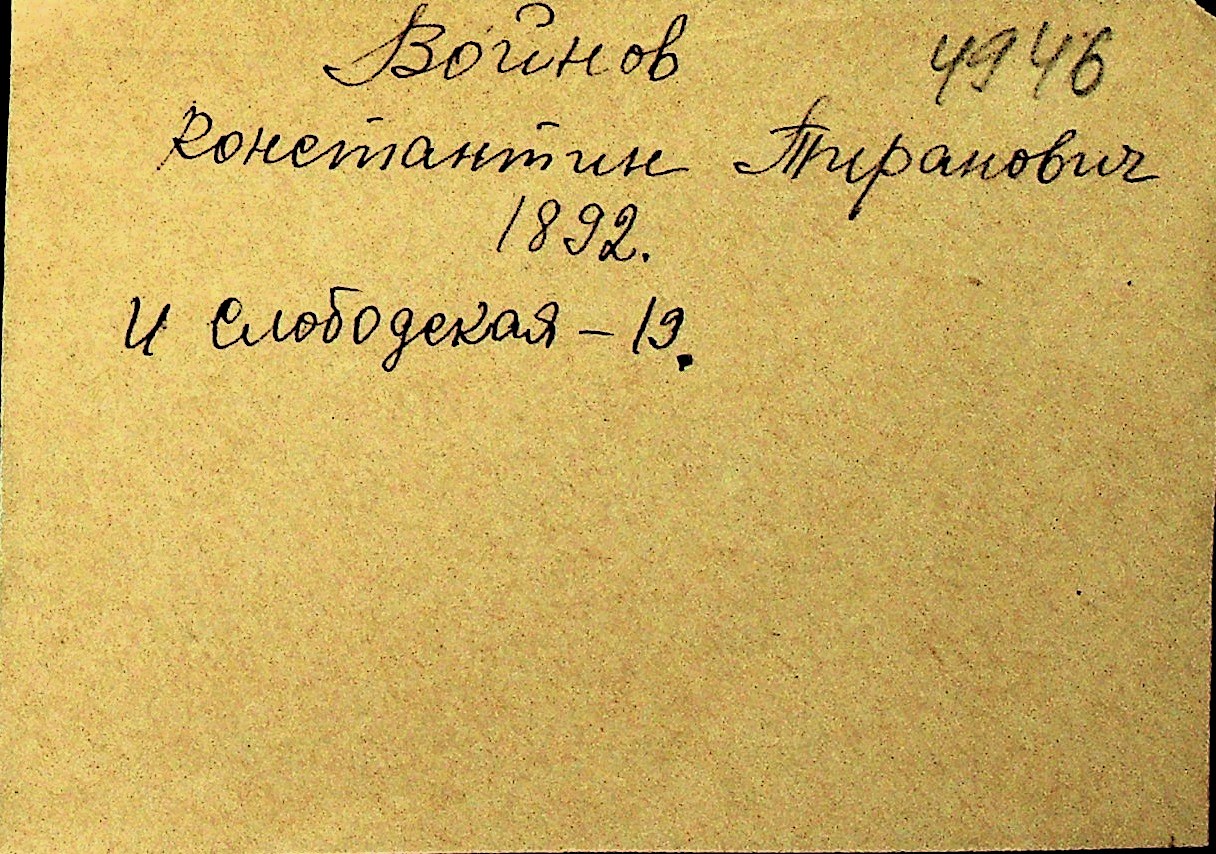 Войнов 4946
Константин Тиранович
1892.
И Слободская - 19.